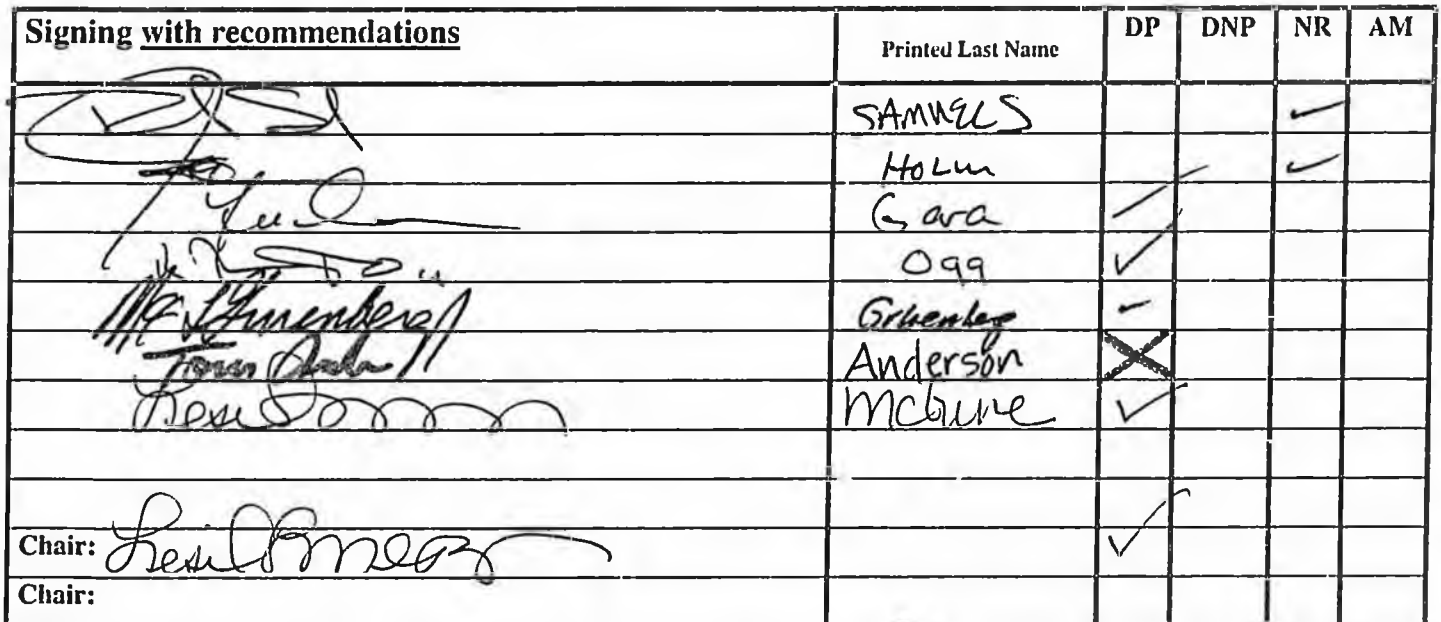 Signing with recommendations Printed Last Name DP DNP NR AM
SAMUELS ✓
HOLM ✓
Gara ✓
Ogg ✓
Gruenberg ✓
Anderson X
McGuire ✓
Chair: ✓
Chair: